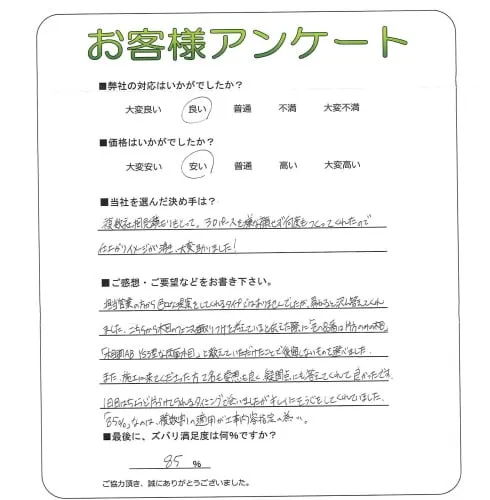 お客様アンケート
■弊社の対応はいかがでしたか?
大変良い 良い 普通 不満 大変不満
■価格はいかがでしたか?
大変安い 安い 普通 高い 大変高い
■当社を選んだ決め手は?
複数社相見積もりをとって、3Dパースを嫌な顔せず何度もつくってくれたので
仕上がりイメージが 大変助りました!
■ご感想・ご要望などをお書き下さい。
担当営業の方から 提案をしてくれるタイプではありませんでしたが、 答えてくれ
ました。こちらから を考えていると伝えた際に
と教えていただけたことで後悔しないもので選べました。
また、施工に来てくださった方 も愛想も良く、疑問点にも答えてくれて良かったです。
1日目は タイミングで会いましたがキレイにそうじをしてくれていました。
「85%」なのは、複数割の適用が工事内容指定の為…。
■最後に、ズバリ満足度は何%ですか?
85 %
ご協力頂き、誠にありがとうございました。